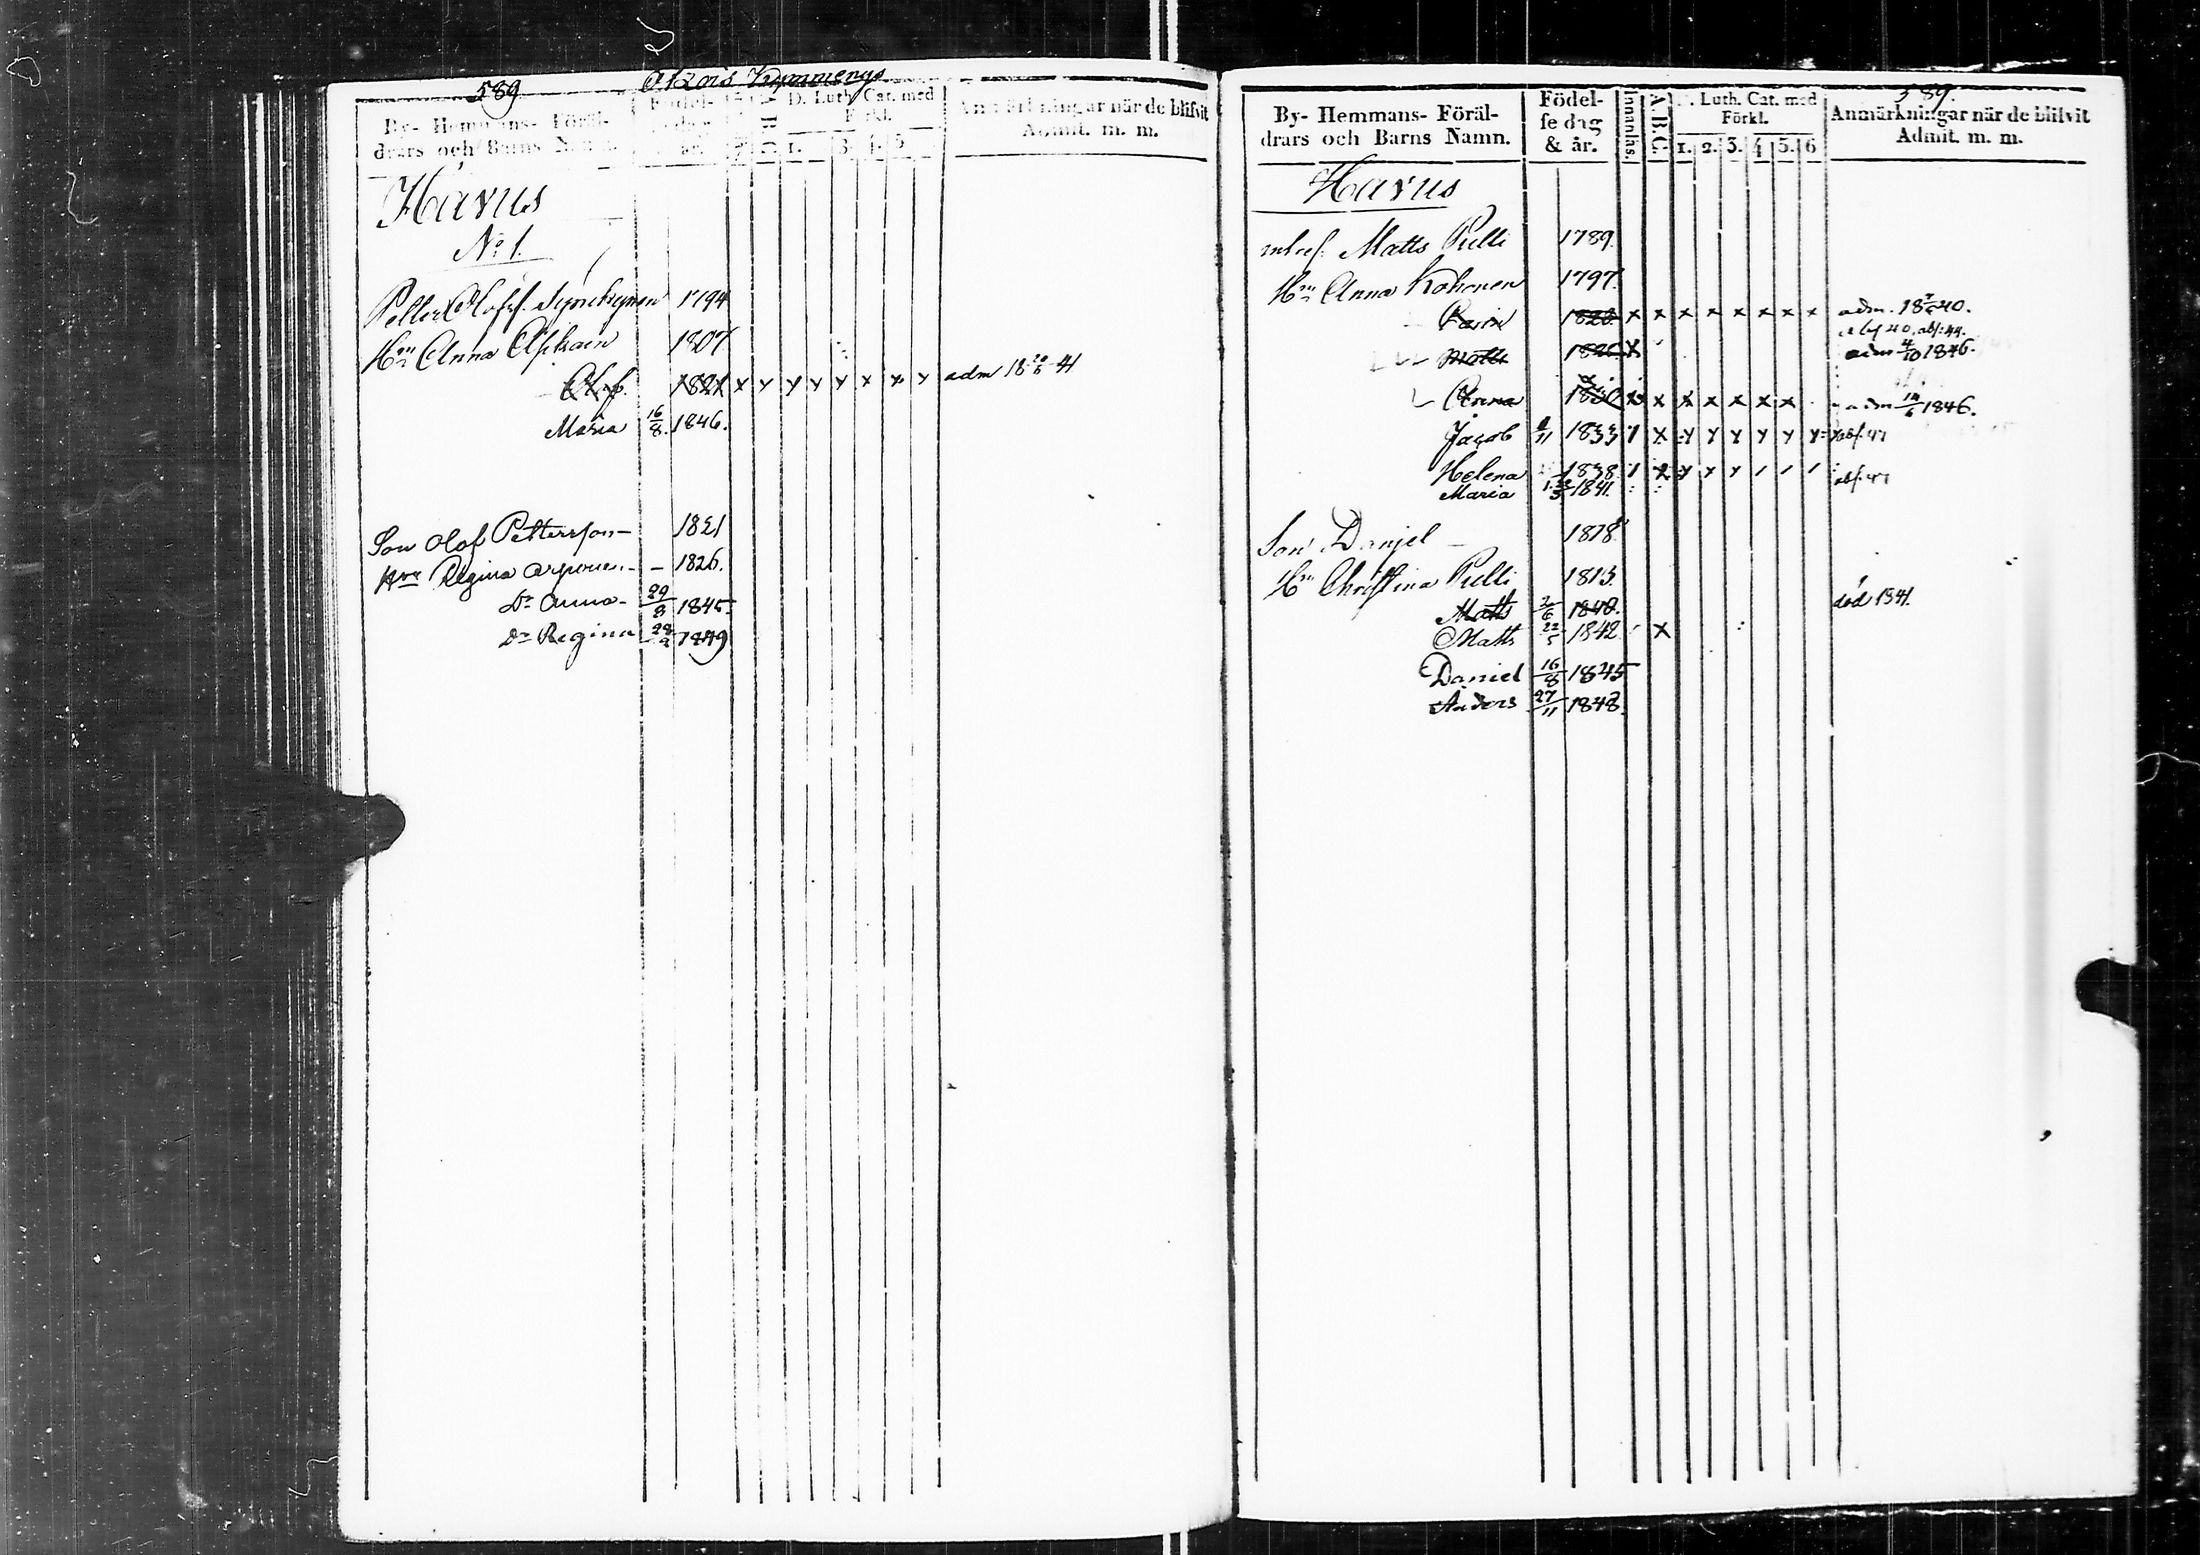 589
By- Hemmans- Föräl-
drars och Barns Namn.
Födel-
D. Luth. Cat. med
Förkl.
1. 3. 4. 5
Anmärkningar när de blifvit
Admit. m. m.
Havus
No 1.
Petter Olofss. 1794
Hru Anna 1807
Olof 1821 x y y y y x x y adm 18 20/6 41
Maria 16/8 1846.
Son Olof Pettersson 1821
Hru Regina 1826.
Dr Anna 29/8 1845
Dr Regina 1849
589.
By- Hemmans- Föräl-
drars och Barns Namn.
Födel-
se dag
& år.
Innanläs.
A.B.C.
D. Luth. Cat. med
Förkl.
1. 2. 3. 4 5. 6
Anmärkningar när de blifvit
Admit. m. m.
Havus
Matts Pulli 1789.
Hru Anna Kohonen 1797.
Carin x x x x x x x x adm. 40.
abs. 44.
Matts x adm 4/10 1846.
Anna 1830 x x x x x x x adm 14/6 1846.
Jacob 1833 1 x y y y y y y abs. 47
Helena 1838 1 x y x y / / / abs. 47
Maria 1841.
Son Danjel 1818
Hru Christina Pulli 1813.
Matts 1840. död 1841.
Matts 22/5 1842 x
Daniel 16/8 1845
Anders 27/11 1848.